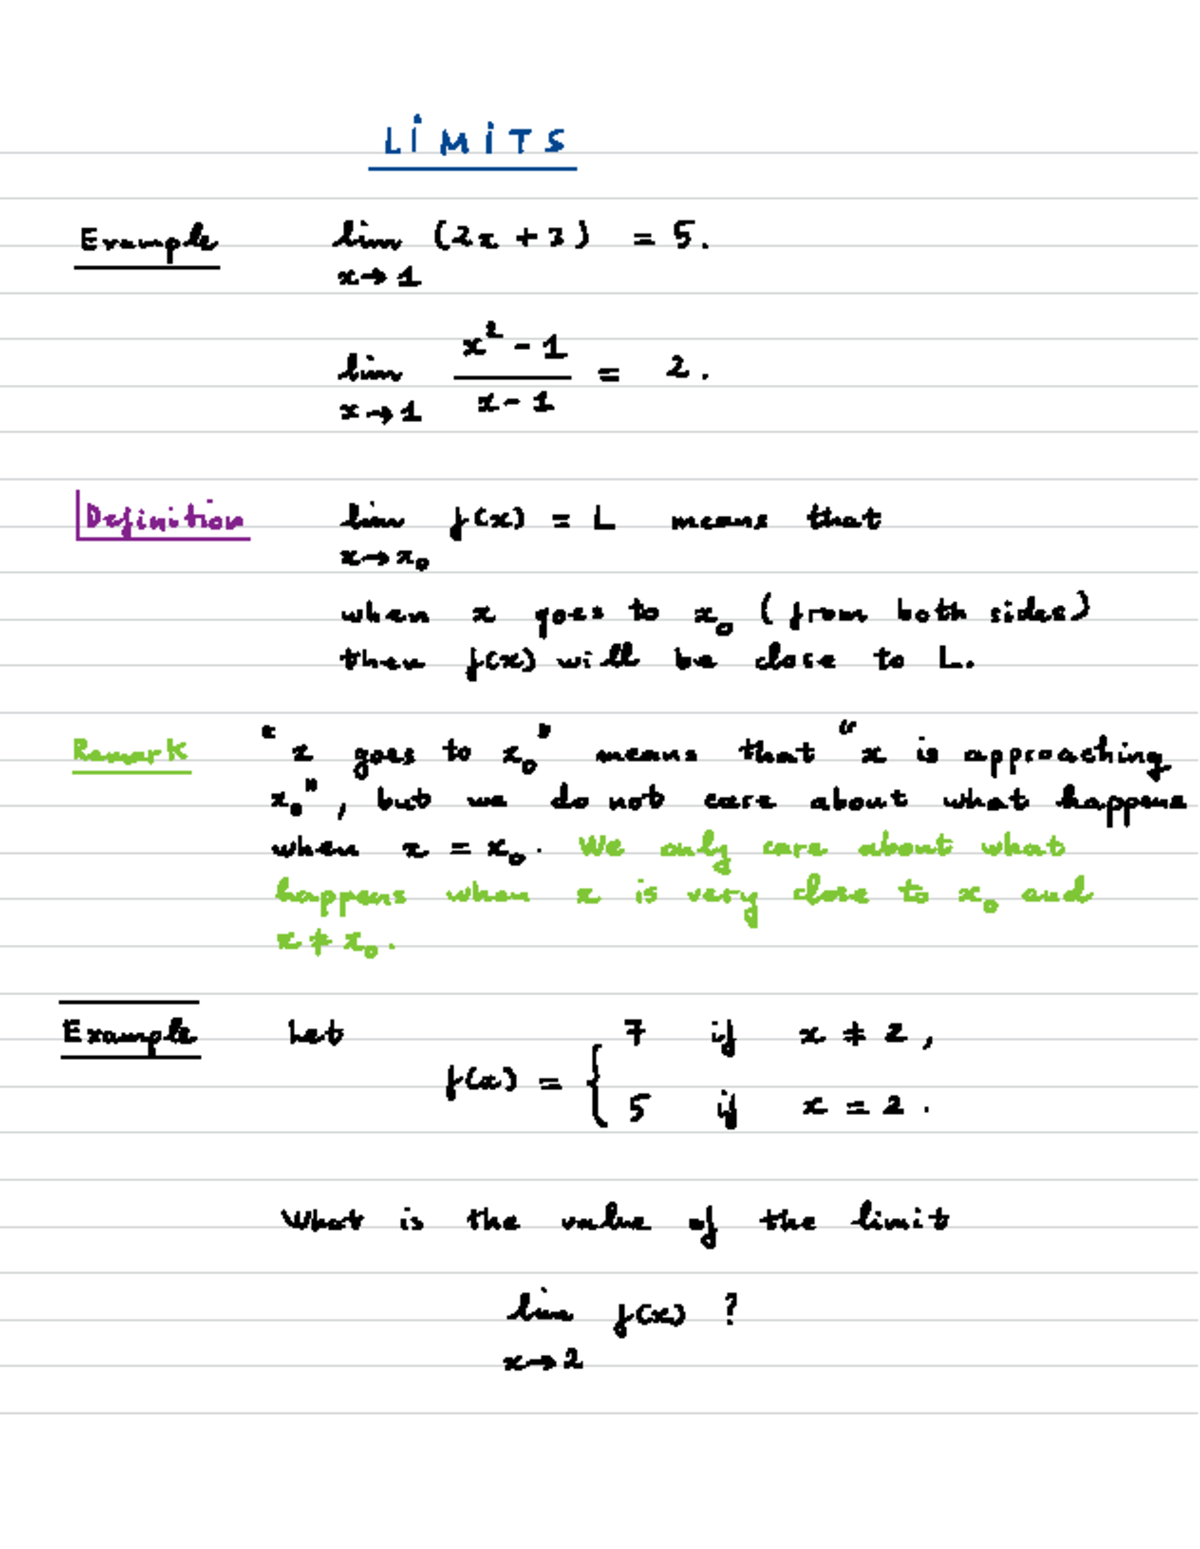 LIMITS
Example lim (2x + 3) = 5.
x→1
x² - 1
lim = 2.
x→1 x - 1
Definition lim f(x) = L means that
x→x₀
when x goes to x₀ (from both sides)
then f(x) will be close to L.
Remark "x goes to x₀" means that "x is approaching
x₀", but we do not care about what happens
when x = x₀. We only care about what
happens when x is very close to x₀ and
x ≠ x₀.
Example Let 7 if x ≠ 2,
f(x) = {
5 if x = 2.
What is the value of the limit
lim f(x) ?
x→2